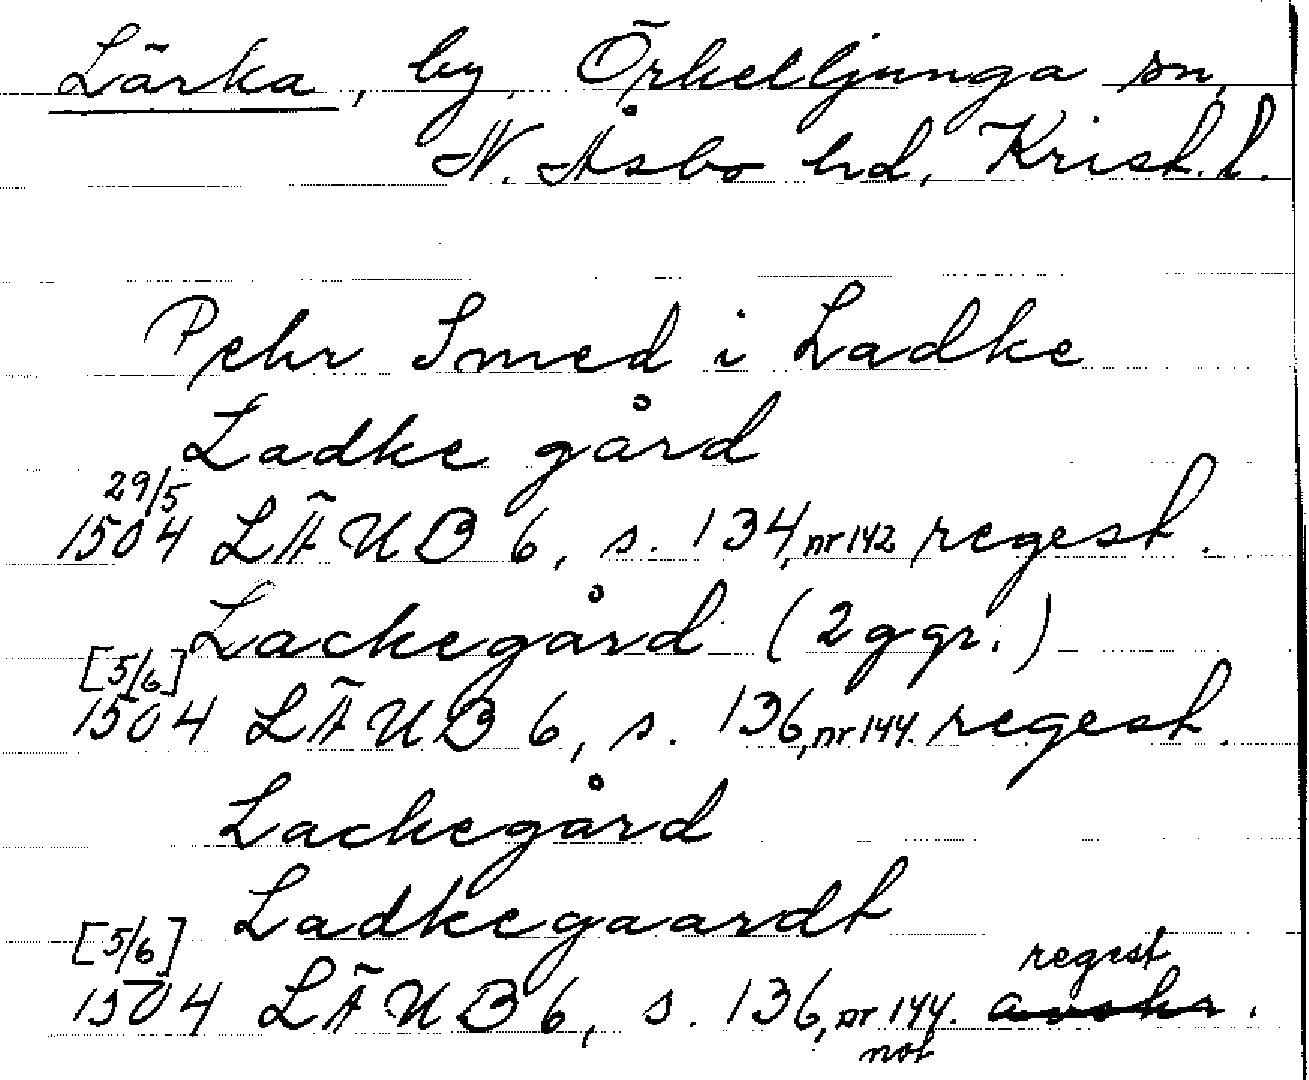 Lärka, by, Örkelljunga sn,
N. Åsbo hd, Krist. l.
Pehr Smed i Ladke
Ladke gård
29/5
1504 LÄUB 6, s. 134, nr 142 regest.
Lackegård (2 ggr.)
[5/6]
1504 LÄUB 6, s. 136, nr 144. regest.
Lackegård
Ladkegaardt
[5/6] regest
1504 LÄUB 6, s. 136, nr 144. avskr.
not